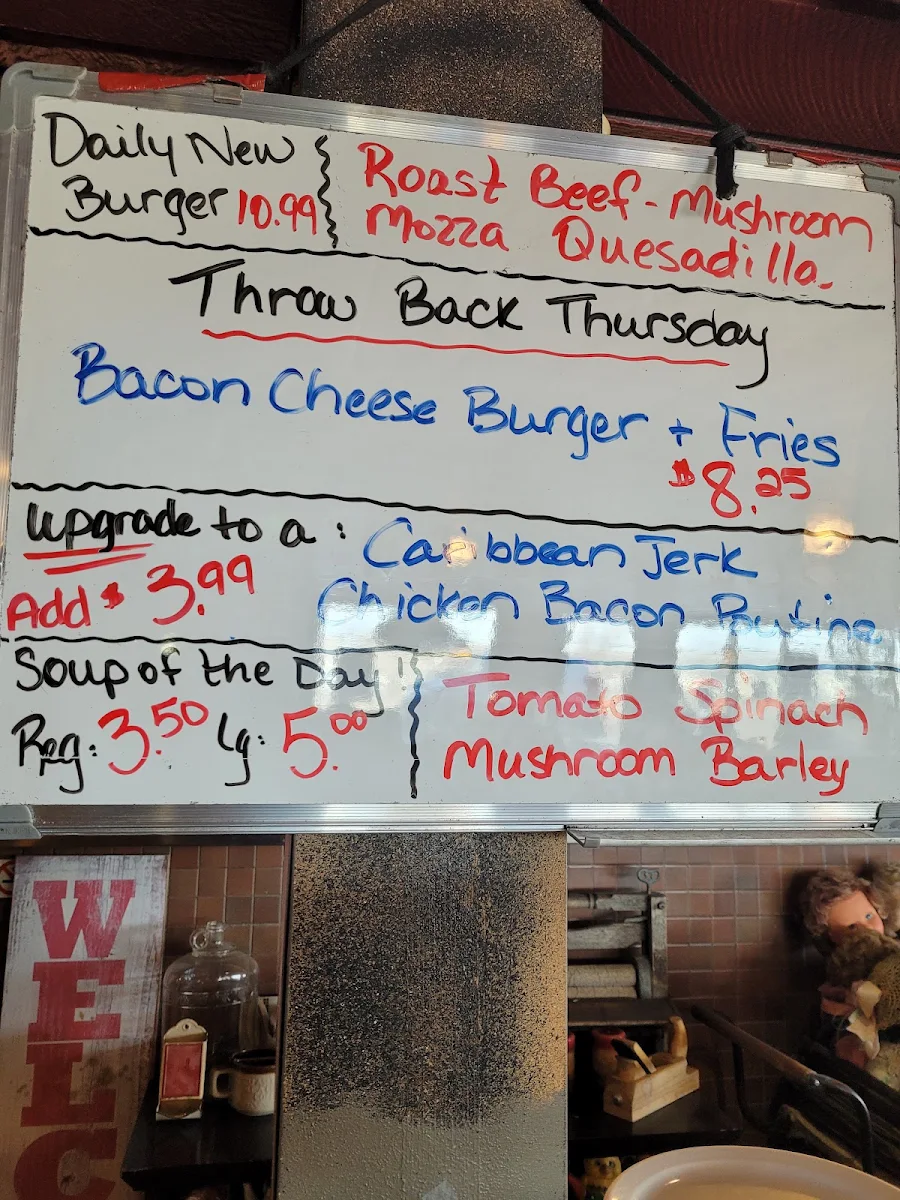 Daily New
Burger 10.99
Roast Beef - Mushroom
Mozza Quesadilla.
Throw Back Thursday
Bacon Cheese Burger + Fries
$8.25
upgrade to a :
Add $3.99
Caribbean Jerk
Chicken Bacon Poutine
Soup of the Day!
Reg: 3.50 Lg: 5.00
Tomato Spinach
Mushroom Barley
WELC